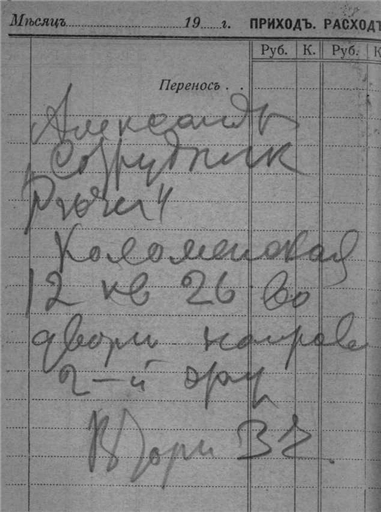 Мѣсяцъ 19 г. ПРИХОДЪ. РАСХОДЪ
Руб. К. Руб. К
Переносъ . .
Александръ
Сотрудник
Коломенская
12 кв 26 во
дворѣ направо
2-й этаж
Вторн 3 ч.